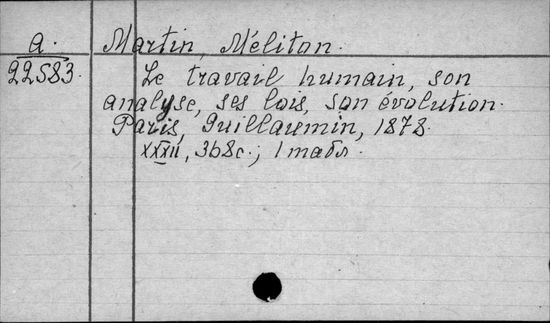 A.
22583.
Martin, Méliton.
Le travail humain, son
analyse, ses lois, son évolution.
Paris, Guillaumin, 1878.
XXXII, 368c.; 1 табл.